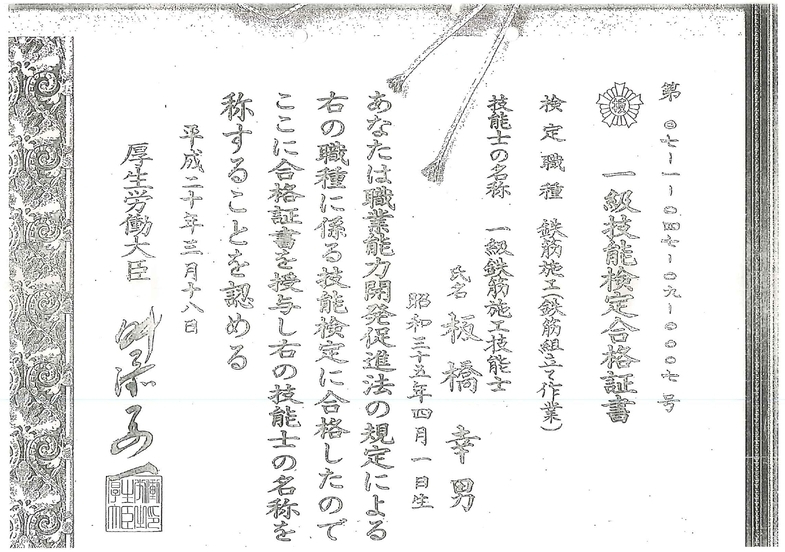 第〇七-一-〇四七-〇九-〇〇〇七号
一級技能検定合格証書
検定職種 鉄筋施工(鉄筋組立て作業)
技能士の名称 一級鉄筋施工技能士
氏名 板橋 幸男
昭和三十五年四月一日生
あなたは職業能力開発促進法の規定による
右の職種に係る技能検定に合格したので
ここに合格証書を授与し右の技能士の名称を
称することを認める
平成二十年三月十八日
厚生労働大臣